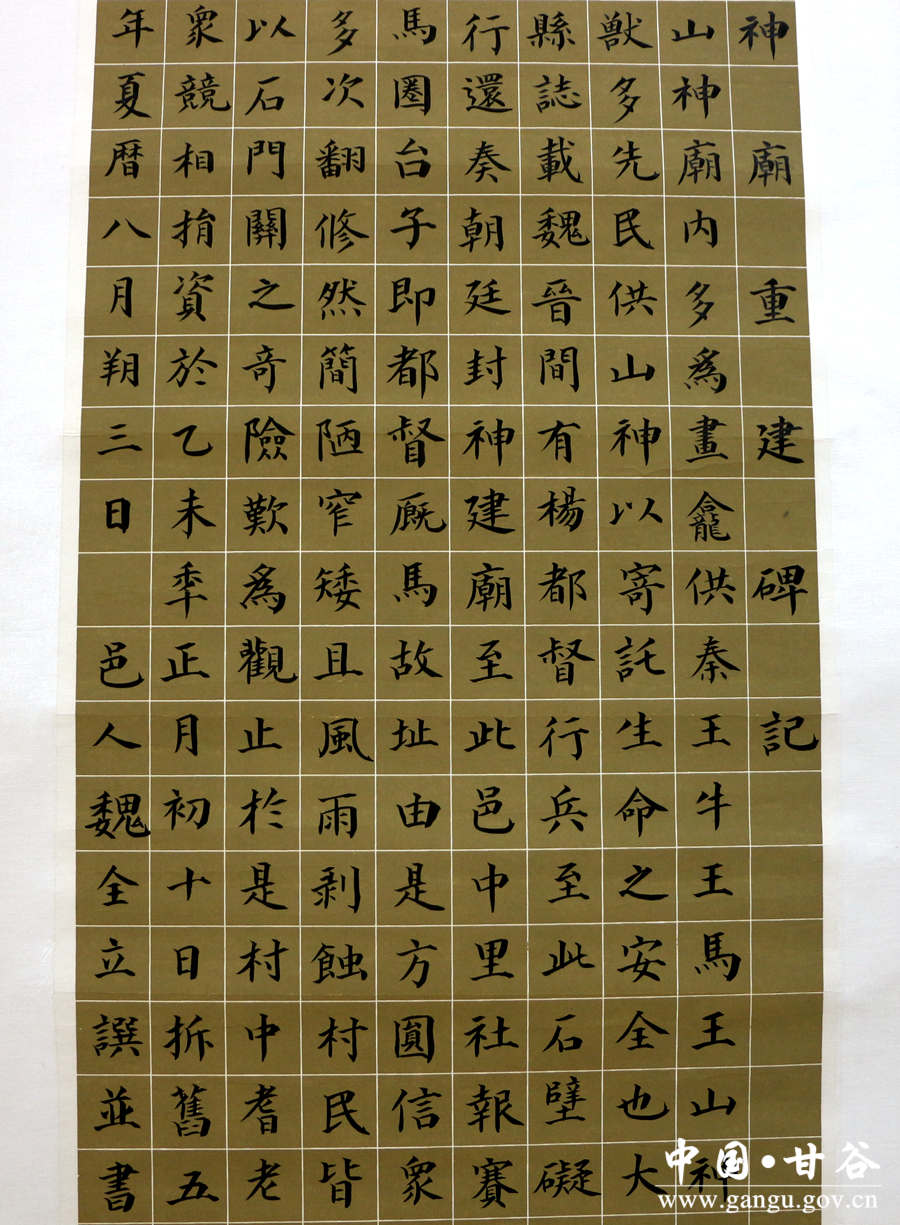 神廟重建碑記
山神廟內多爲畫龕供秦王牛王馬王山神
獸多先民供山神以寄託生命之安全也大
縣誌載魏晉間有楊都督行兵至此石壁礙
行還奏朝廷封神建廟至此邑中里社報賽
馬圈台子即都督厩馬故址由是方圓信衆
多次翻修然簡陋窄矮且風雨剥蝕村民皆
以石門關之奇險歎爲觀止於是村中耆老
衆競相捐資於乙未秊正月初十日拆舊五
年夏暦八月朔三日 邑人魏全立譔並書
中国·甘谷
www.gangu.gov.cn